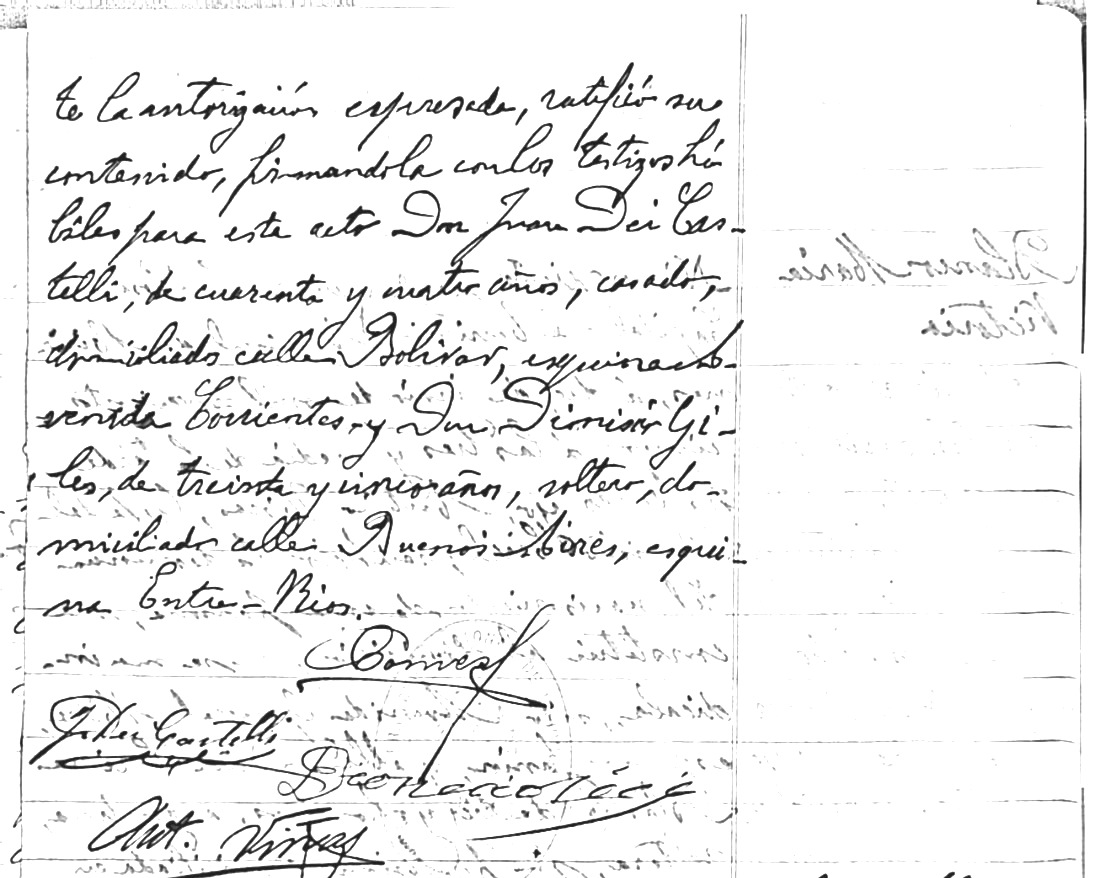 te la autorización expresada, ratificó su
contenido, firmandola con los testigos há
biles para este acto Don Juan Dei Cas-
telli, de cuarenta y cuatro años, casado,-
domiciliado calle Bolivar, esquina A-
venida Corrientes, y Don Dionisio Gi-
les, de treinta y cinco años, soltero, do-
miciliado calle Buenos Aires, esqui-
na Entre-Rios.
J. Dei Castelli
Ant.